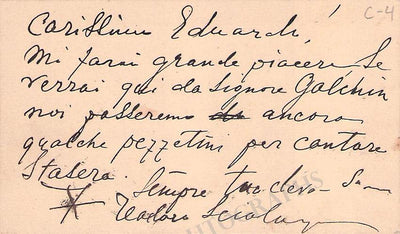 C-4
Carissimo Eduardo,
Mi farai grande piacere se
verrai qui da Signore Galchin
noi passeremo da ancora
qualche pezzetini per cantare
Stasera.
Sempre tuo